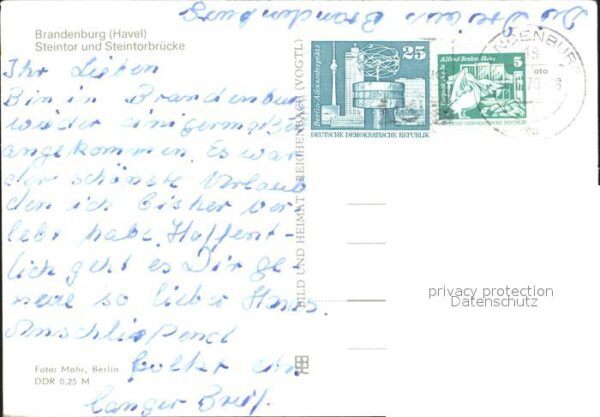 Brandenburg (Havel)
Steintor und Steintorbrücke
Ihr Lieben
Bin in Brandenbur
wieder einigermaßen
angekommen. Es war
der schönste Urlaub
den ich bisher ver
lebt habe. Hoffent-
lich geht es Dir ge-
so lieber Hans
Anschließend
langer Brief.
Foto: Mohr, Berlin
DDR 0,25 M
BILD UND HEIMAT REICHENBACH (VOGTL)
aus Brandenburg
25
Berlin-Alexanderplatz
DEUTSCHE DEMOKRATISCHE REPUBLIK
Alfred Brehm-Haus
5
Tierpark Berlin
NDENBURG
privacy protection
Datenschutz